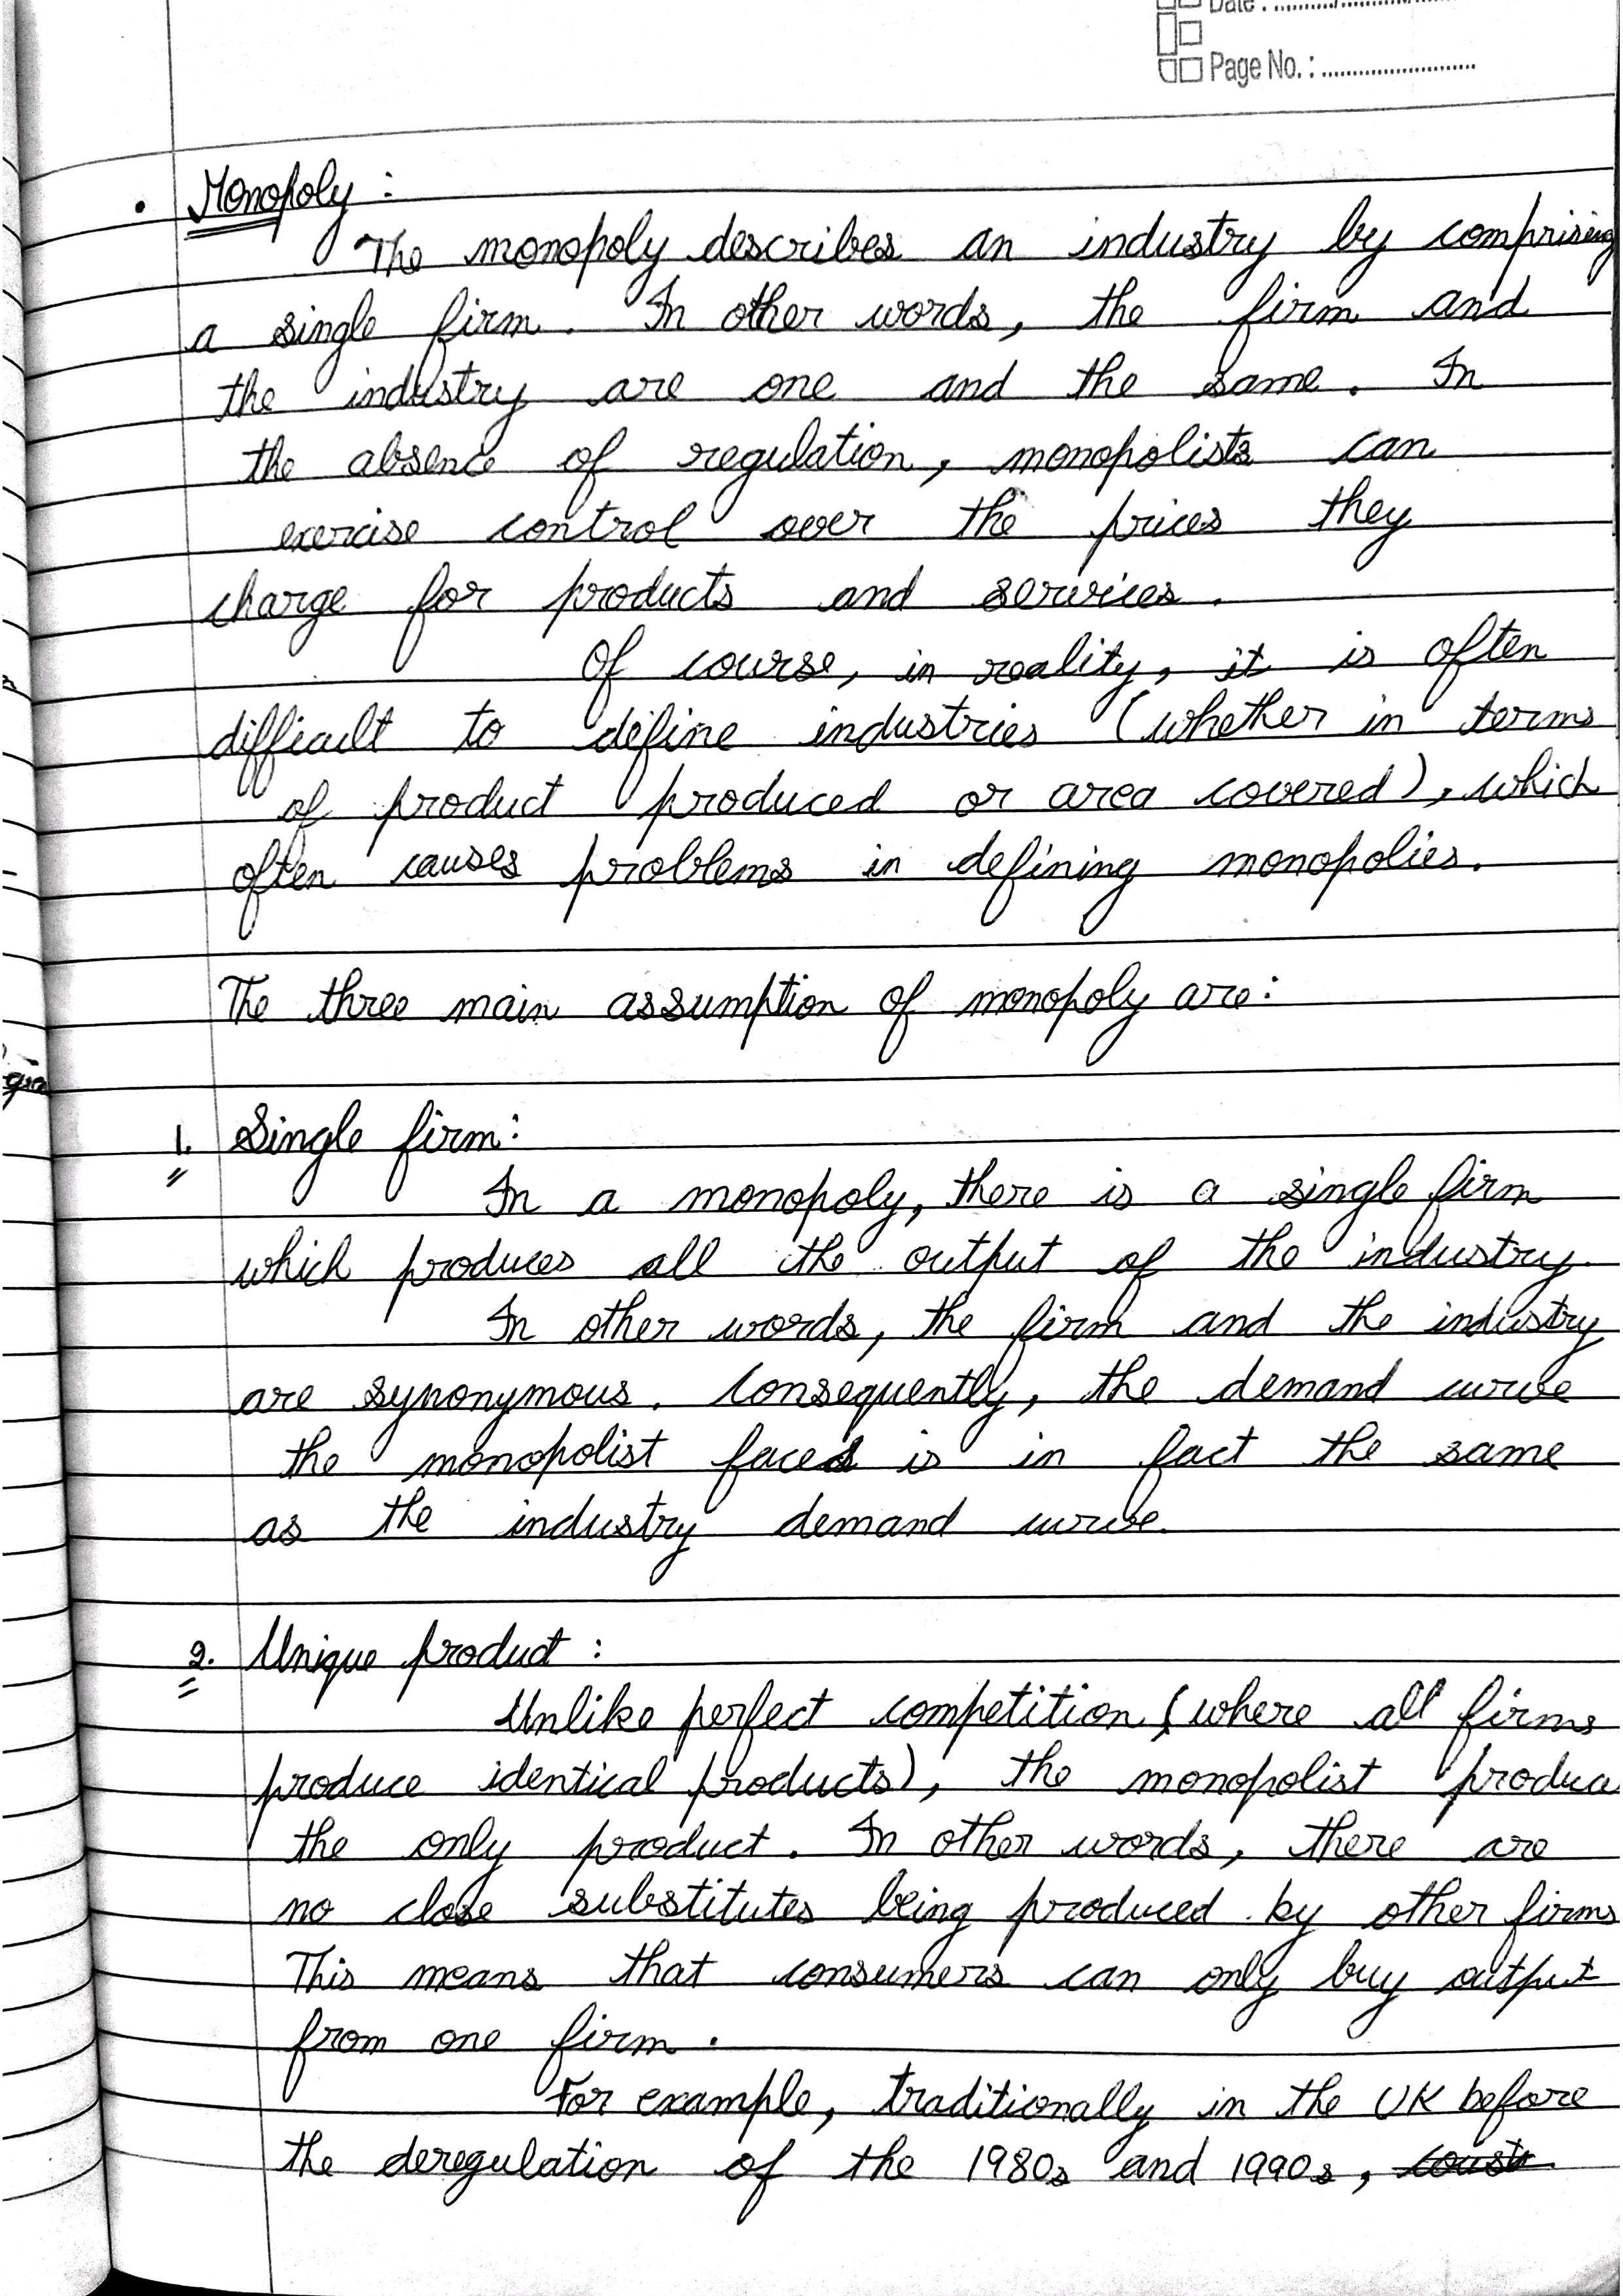 Date : ........../............/
Page No. : ..........................
• Monopoly :
The monopoly describes an industry by comprising
a single firm. In other words, the firm and
the industry are one and the same. In
the absence of regulation, monopolists can
exercise control over the prices they
charge for products and services.
Of course, in reality, it is often
difficult to define industries (whether in terms
of product produced or area covered), which
often causes problems in defining monopolies.
The three main assumption of monopoly are:
1. Single firm:
In a monopoly, there is a single firm
which produces all the output of the industry.
In other words, the firm and the industry
are synonymous. Consequently, the demand curve
the monopolist faces is in fact the same
as the industry demand curve.
2. Unique product :
Unlike perfect competition (where all firms
produce identical products), the monopolist produc
the only product. In other words, there are
no close substitutes being produced by other firms
This means that consumers can only buy output
from one firm.
For example, traditionally in the UK before
the deregulation of the 1980s and 1990s,